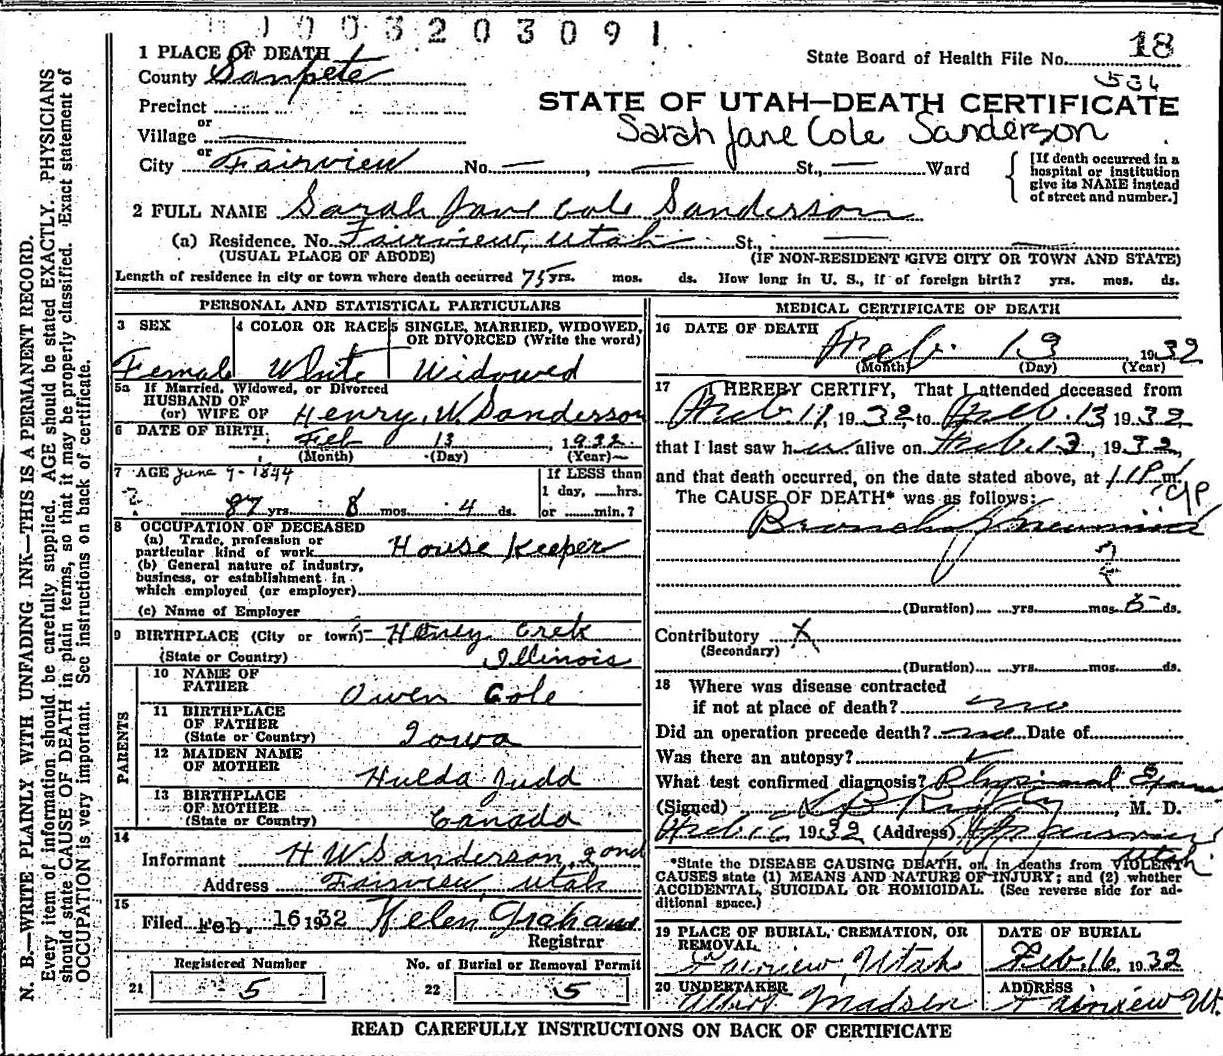 1003203091
1 PLACE OF DEATH
State Board of Health File No. 18
County Sanpete
536
Precinct
STATE OF UTAH—DEATH CERTIFICATE
or
Village
Sarah Jane Cole Sanderson
or
City Fairview No. — , — St., — Ward
[If death occurred in a
hospital or institution
give its NAME instead
of street and number.]
2 FULL NAME Sarah Jane Cole Sanderson
(a) Residence. No. Fairview, Utah St., —
(USUAL PLACE OF ABODE) (IF NON-RESIDENT GIVE CITY OR TOWN AND STATE)
Length of residence in city or town where death occurred 75 yrs. mos. ds. How long in U. S., if of foreign birth? yrs. mos. ds.
PERSONAL AND STATISTICAL PARTICULARS
3 SEX 4 COLOR OR RACE 5 SINGLE, MARRIED, WIDOWED,
OR DIVORCED (Write the word)
Female White Widowed
5a If Married, Widowed, or Divorced
HUSBAND OF
(or) WIFE OF Henry W. Sanderson
6 DATE OF BIRTH
Feb 13, 1932
(Month) (Day) (Year)
7 AGE June 9-1844
If LESS than
1 day, hrs.
or min.?
? 87 yrs. 8 mos. 4 ds.
8 OCCUPATION OF DECEASED
(a) Trade, profession or
particular kind of work House Keeper
(b) General nature of industry,
business, or establishment in
which employed (or employer)
(c) Name of Employer
9 BIRTHPLACE (City or town) Honey Crek
(State or Country) Illinois
PARENTS
10 NAME OF
FATHER Owen Cole
11 BIRTHPLACE
OF FATHER
(State or Country) Iowa
12 MAIDEN NAME
OF MOTHER Hulda Judd
13 BIRTHPLACE
OF MOTHER
(State or Country) Canada
14
Informant H W Sanderson, 2ond
Address Fairview, Utah
15
Filed Feb. 16 1932 Helen Graham
Registrar
Registered Number No. of Burial or Removal Permit
21 5 22 5
MEDICAL CERTIFICATE OF DEATH
16 DATE OF DEATH
Feb. 13, 1932
(Month) (Day) (Year)
17 I HEREBY CERTIFY, That I attended deceased from
Feb. 11, 1932, to Feb. 13 1932
that I last saw her alive on Feb. 13, 1932,
and that death occurred, on the date stated above, at 11P m.
The CAUSE OF DEATH* was as follows:
Broncho Pneumonia
(Duration) yrs. mos. 5 ds.
Contributory X
(Secondary)
(Duration) yrs. mos. ds.
18 Where was disease contracted
if not at place of death? no
Did an operation precede death? no Date of
Was there an autopsy?
What test confirmed diagnosis? Physical Exam
(Signed) M. D.
1932 (Address) Utah
*State the DISEASE CAUSING DEATH, or, in deaths from VIOLENT
CAUSES state (1) MEANS AND NATURE OF INJURY; and (2) whether
ACCIDENTAL, SUICIDAL OR HOMICIDAL. (See reverse side for ad-
ditional space.)
19 PLACE OF BURIAL, CREMATION, OR
REMOVAL
Fairview, Utah
DATE OF BURIAL
Feb. 16, 1932
20 UNDERTAKER
Albert Madsen
ADDRESS
Fairview Ut.
READ CAREFULLY INSTRUCTIONS ON BACK OF CERTIFICATE
N. B.—WRITE PLAINLY WITH UNFADING INK—THIS IS A PERMANENT RECORD.
Every item of information should be carefully supplied. AGE should be stated EXACTLY. PHYSICIANS
should state CAUSE OF DEATH in plain terms, so that it may be properly classified. Exact statement of
OCCUPATION is very important. See instructions on back of certificate.